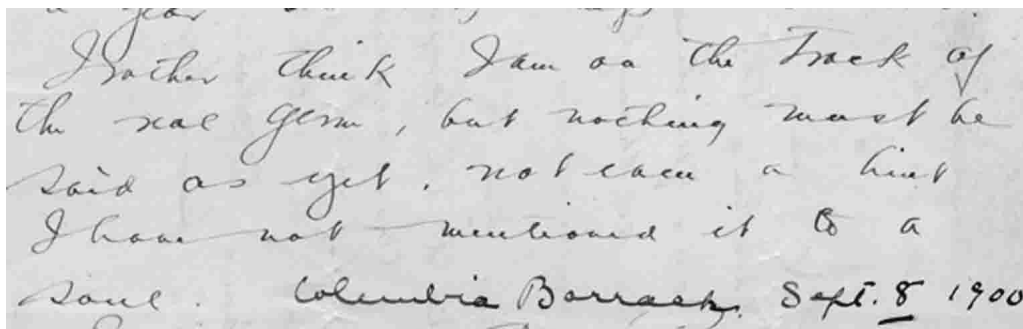 a year
I rather think I am on the track of
the real germ, but nothing must be
said as yet, not even a hint
I have not mentioned it to a
soul. Columbia Barracks. Sept. 8 1900